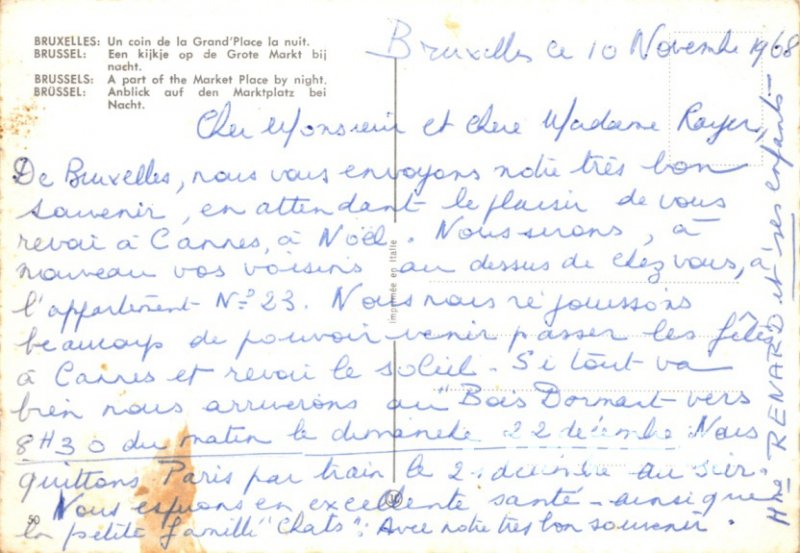 BRUXELLES: Un coin de la Grand'Place la nuit.
BRUSSEL: Een kijkje op de Grote Markt bij
nacht.
BRUSSELS: A part of the Market Place by night.
BRÜSSEL: Anblick auf den Marktplatz bei
Nacht.
Bruxelles ce 10 Novembre 1968
Cher Monsieur et chère Madame Rayer,
De Bruxelles, nous vous envoyons notre très bon
souvenir, en attendant le plaisir de vous
revoir à Cannes, à Noël. Nous serons, à
nouveau vos voisins au dessus de chez vous, à
l'appartement N° 23. Nous nous réjouissons
beaucoup de pouvoir venir passer les fêtes
à Cannes et revoir le soleil. Si tout va
bien nous arriverons au "Bois Dormant" vers
8H30 du matin le dimanche 22 décembre Nous
quittons Paris par train le 2 décembre au soir.
Nous espérons en excellente santé - ainsi que
la petite famille "Chats". Avec notre très bon souvenir.
Mme RENARD et ses enfants
imprimée en Italie
50